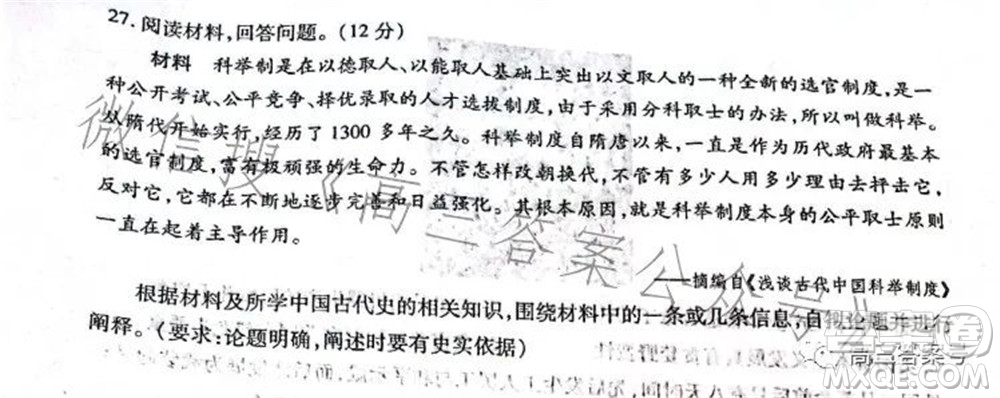 27. 阅读材料,回答问题。(12 分)
材料 科举制是在以德取人、以能取人基础上突出以文取人的一种全新的选官制度,是一
种公开考试、公平竞争、择优录取的人才选拔制度,由于采用分科取士的办法,所以叫做科举。
从隋代开始实行,经历了 1300 多年之久。科举制度自隋唐以来,一直是作为历代政府最基本
的选官制度,富有极顽强的生命力。不管怎样改朝换代,不管有多少人用多少理由去抨击它,
反对它,它都在不断地逐步完善和日益强化。其根本原因,就是科举制度本身的公平取士原则
一直在起着主导作用。
——摘编自《浅谈古代中国科举制度》
根据材料及所学中国古代史的相关知识,围绕材料中的一条或几条信息,自拟论题并进行
阐释。(要求:论题明确,阐述时要有史实依据)
微信搜《高三答案公众号》
高三答案号
答案圈
MXQE.COM